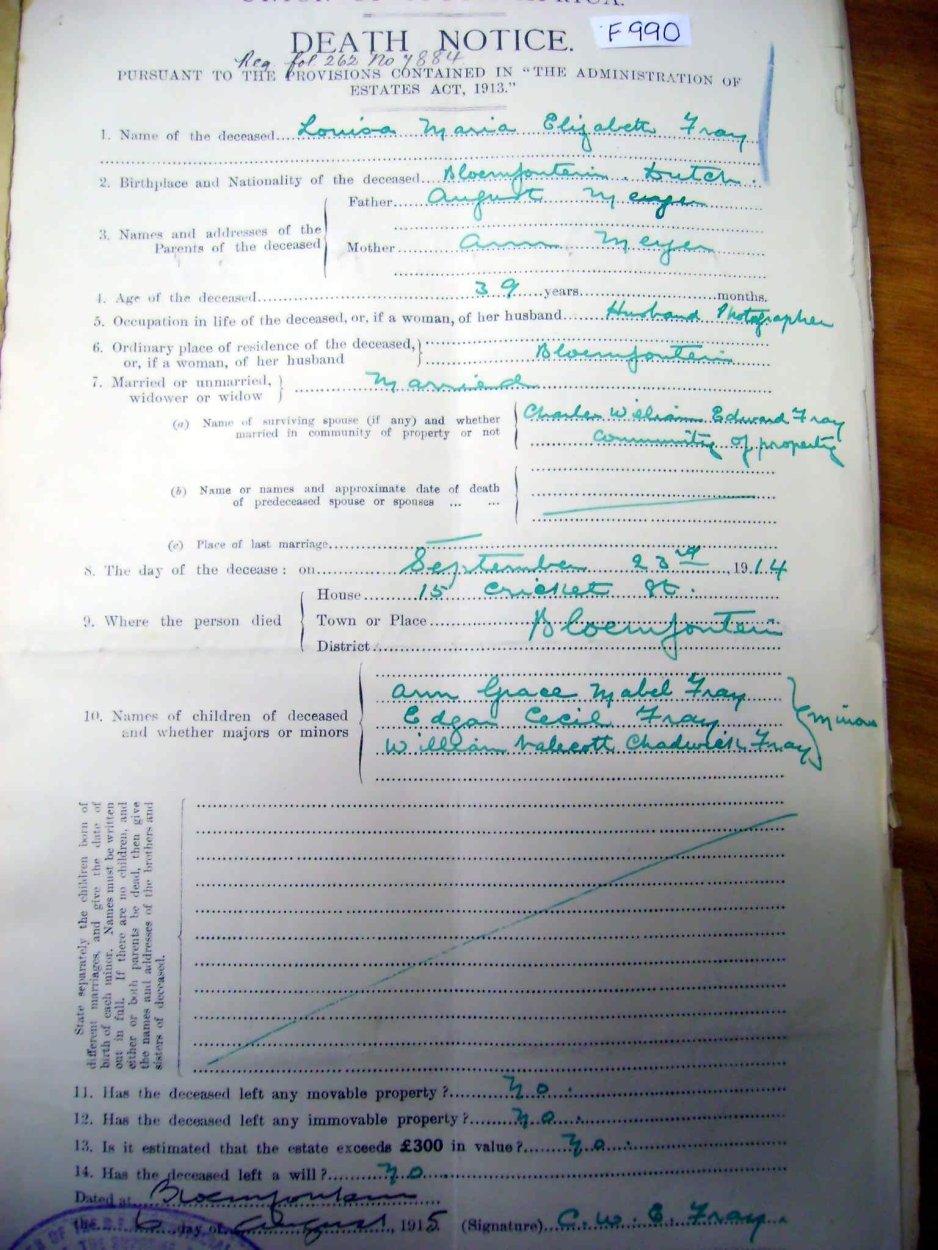 DEATH NOTICE.
F990
Reg fol 262 No 7884
PURSUANT TO THE PROVISIONS CONTAINED IN "THE ADMINISTRATION OF
ESTATES ACT, 1913."
1. Name of the deceased Louisa Maria Elizabeth Fray
2. Birthplace and Nationality of the deceased Bloemfontein. Dutch.
3. Names and addresses of the Parents of the deceased
Father August Meyer
Mother Ann Meyer
4. Age of the deceased 39 years months.
5. Occupation in life of the deceased, or, if a woman, of her husband Husband Photographer
6. Ordinary place of residence of the deceased,
or, if a woman, of her husband Bloemfontein
7. Married or unmarried,
widower or widow Married
(a) Name of surviving spouse (if any) and whether
married in community of property or not
Charles William Edward Fray
community of property
(b) Name or names and approximate date of death
of predeceased spouse or spouses ... ...
(c) Place of last marriage
8. The day of the decease: on September 23rd, 1914
9. Where the person died
House 15 Cricket St.
Town or Place Bloemfontein
District
10. Names of children of deceased
and whether majors or minors
Ann Grace Mabel Fray
Edgar Cecil Fray
William Chadwick Fray
minors
State separately the children born of
different marriages, and give the date of
birth of each minor. Names must be written
out in full. If there are no children, and
either or both parents be dead, then give
the names and addresses of the brothers and
sisters of deceased.
11. Has the deceased left any movable property? No.
12. Has the deceased left any immovable property? No.
13. Is it estimated that the estate exceeds £300 in value? No.
14. Has the deceased left a will? No
Dated at Bloemfontein
the 6 day of August, 1915 (Signature) C. W. E. Fray.